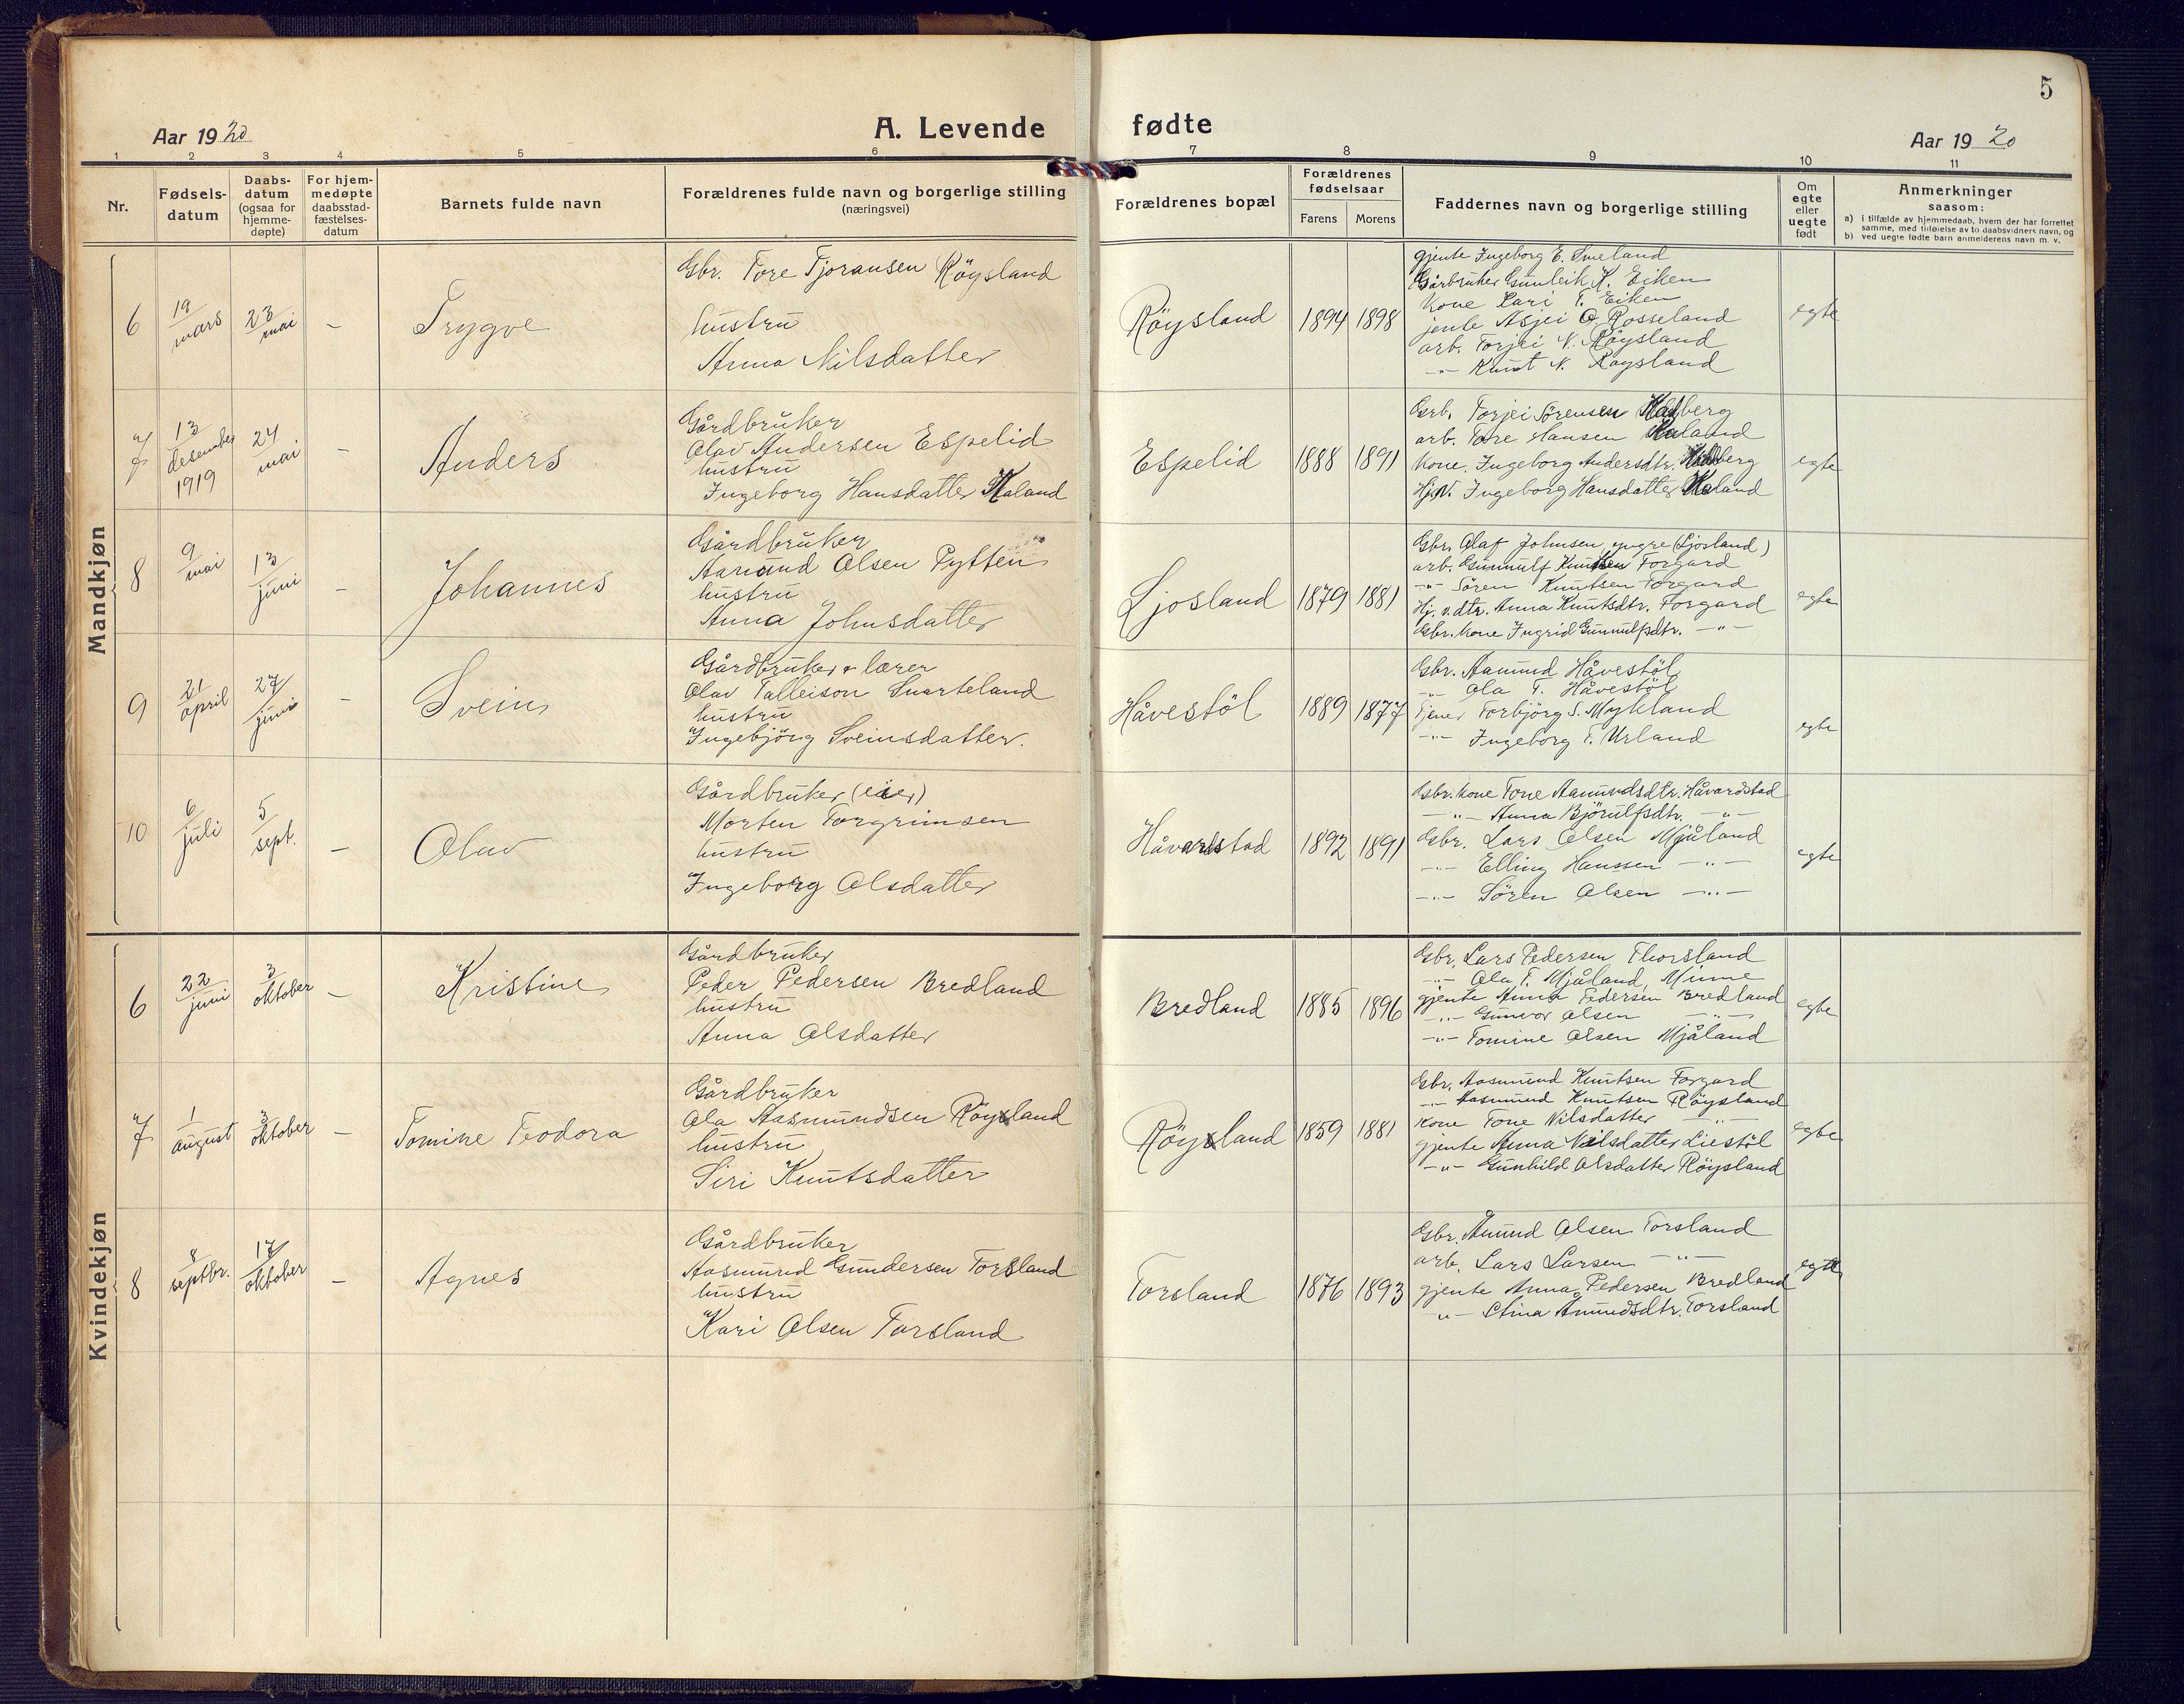 5
Aar 1920
A. Levende
fødte
Aar 1920
1 2 3 4 5 6 7 8 9 10 11
Nr.
Fødsels-
datum
Daabs-
datum
(ogsaa for
hjemme-
døpte)
For hjem-
medøpte
daabsstad-
fæstelses-
datum
Barnets fulde navn
Forældrenes fulde navn og borgerlige stilling
(næringsvei)
Forældrenes bopæl
Forældrenes
fødselsaar
Farens Morens
Faddernes navn og borgerlige stilling
Om
egte
eller
uegte
født
Anmerkninger
saasom:
a) i tilfælde av hjemmedaab, hvem der har forrettet
samme, med tilføielse av to daabsvidners navn, og
b) ved uegte fødte barn anmelderens navn m. v.
Mandkjøn
6
19
mars
23
mai
-
Trygve
Gbr. Tore Tjoransen Röysland
hustru
Anna Nilsdatter
Röysland
1894 1898
gjente Ingeborg E. Smeland
Gårbruker Gunleik K. Eiken
Kone Kari T. Eiken
jente Asjei O. Rosseland
arb. Torjei N. Röysland
-"- Knut N. Röysland
egte
7
13
desember
1919
24
mai
-
Anders
Gårdbruker
Olav Andersen Espelid
hustru
Ingeborg Hansdatter Haland
Espelid
1888 1891
Grb. Torjei Sörensen
arb. Tore Hansen Haland
Kone. Ingeborg Andersdtr.
Hj.v. Ingeborg Hansdatter Haland
egte
8
9
mai
13
juni
-
Johannes
Gårdbruker
Aanund Olsen Pytten
hustru
Anna Johnsdatter
Ljosland
1879 1881
Gbr. Olaf Johnsen yngre (Ljosland)
arb. Gunnulf Knutsen Forgard
-"- Sören Knutsen Forgard
Hj. v. dtr. Anna Knutsdtr. Forgard
Gbr. kone Ingrid Gunnulfsdtr. -"-
egte
9
21
april
27
juni
-
Svein
Gårdbruker & lærer
Olav Talleison Snarteland
hustru
Ingebjörg Sveinsdatter.
Håvestöl
1889 1877
Gbr. Aanund Håvestöl
-"- Ola T. Håvestöl
Tjener Torbjörg S. Mykland
-"- Ingeborg T. Urland
egte
10
6
juli
5
sept.
-
Olav
Gårdbruker (eier)
Morten Torgrimsen
hustru
Ingeborg Olsdatter
Håvardstad
1892 1891
Gbr. kone Tone Aanundsdtr. Håvardstad
-"- Anna Björulfsdtr. -"-
Gbr. Lars Olsen Mjåland
-"- Elling Hanssen -"-
-"- Sören Olsen -"-
egte
Kvindekjøn
6
22
juni
3
oktober
-
Kristine
Gårdbruker
Peder Pedersen Bredland
hustru
Anna Olsdatter
Bredland
1885 1896
Gbr. Lars Pedersen Thorsland
-"- Ola T. Mjåland, Minne
gjente Anna Pedersen Bredland
-"- Gunvor Olsen -"-
-"- Tomine Olsen Mjåland
egte
7
1
august
3
oktober
-
Tomine Teodora
Gårdbruker
Ola Aasmundsen Röysland
hustru
Siri Knutsdatter
Röysland
1859 1881
Gbr. Aasmund Knutsen Forgard
-"- Aasmund Knutsen Röysland
Kone Tone Nilsdatter -"-
gjente Anna Nilsdatter Liestöl
-"- Gunhild Olsdatter Röysland
egte
8
8
septbr.
17
oktober
-
Agnes
Gårdbruker
Aasmund Gundersen Torsland
hustru
Kari Olsen Torsland
Torsland
1876 1893
Gbr. Ånund Olsen Torsland
arb. Lars Larsen -"-
gjente Anna Pedersen Bredland
-"- Stina Anundsdtr. Torsland
egte